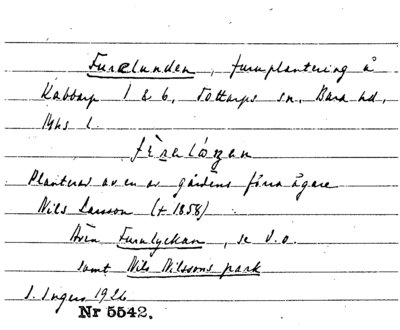 Furelunden, furuplantering å
Kabbarp 1 & 6, Tottarps sn, Bara hd,
Mhs l.
Planterad av en av gårdens förra ägare
Nils Larsson (+ 1858)
Även Furulyckan, se d.o.
samt Nils Nilssons park
I. Ingers 1926
Nr 5542.